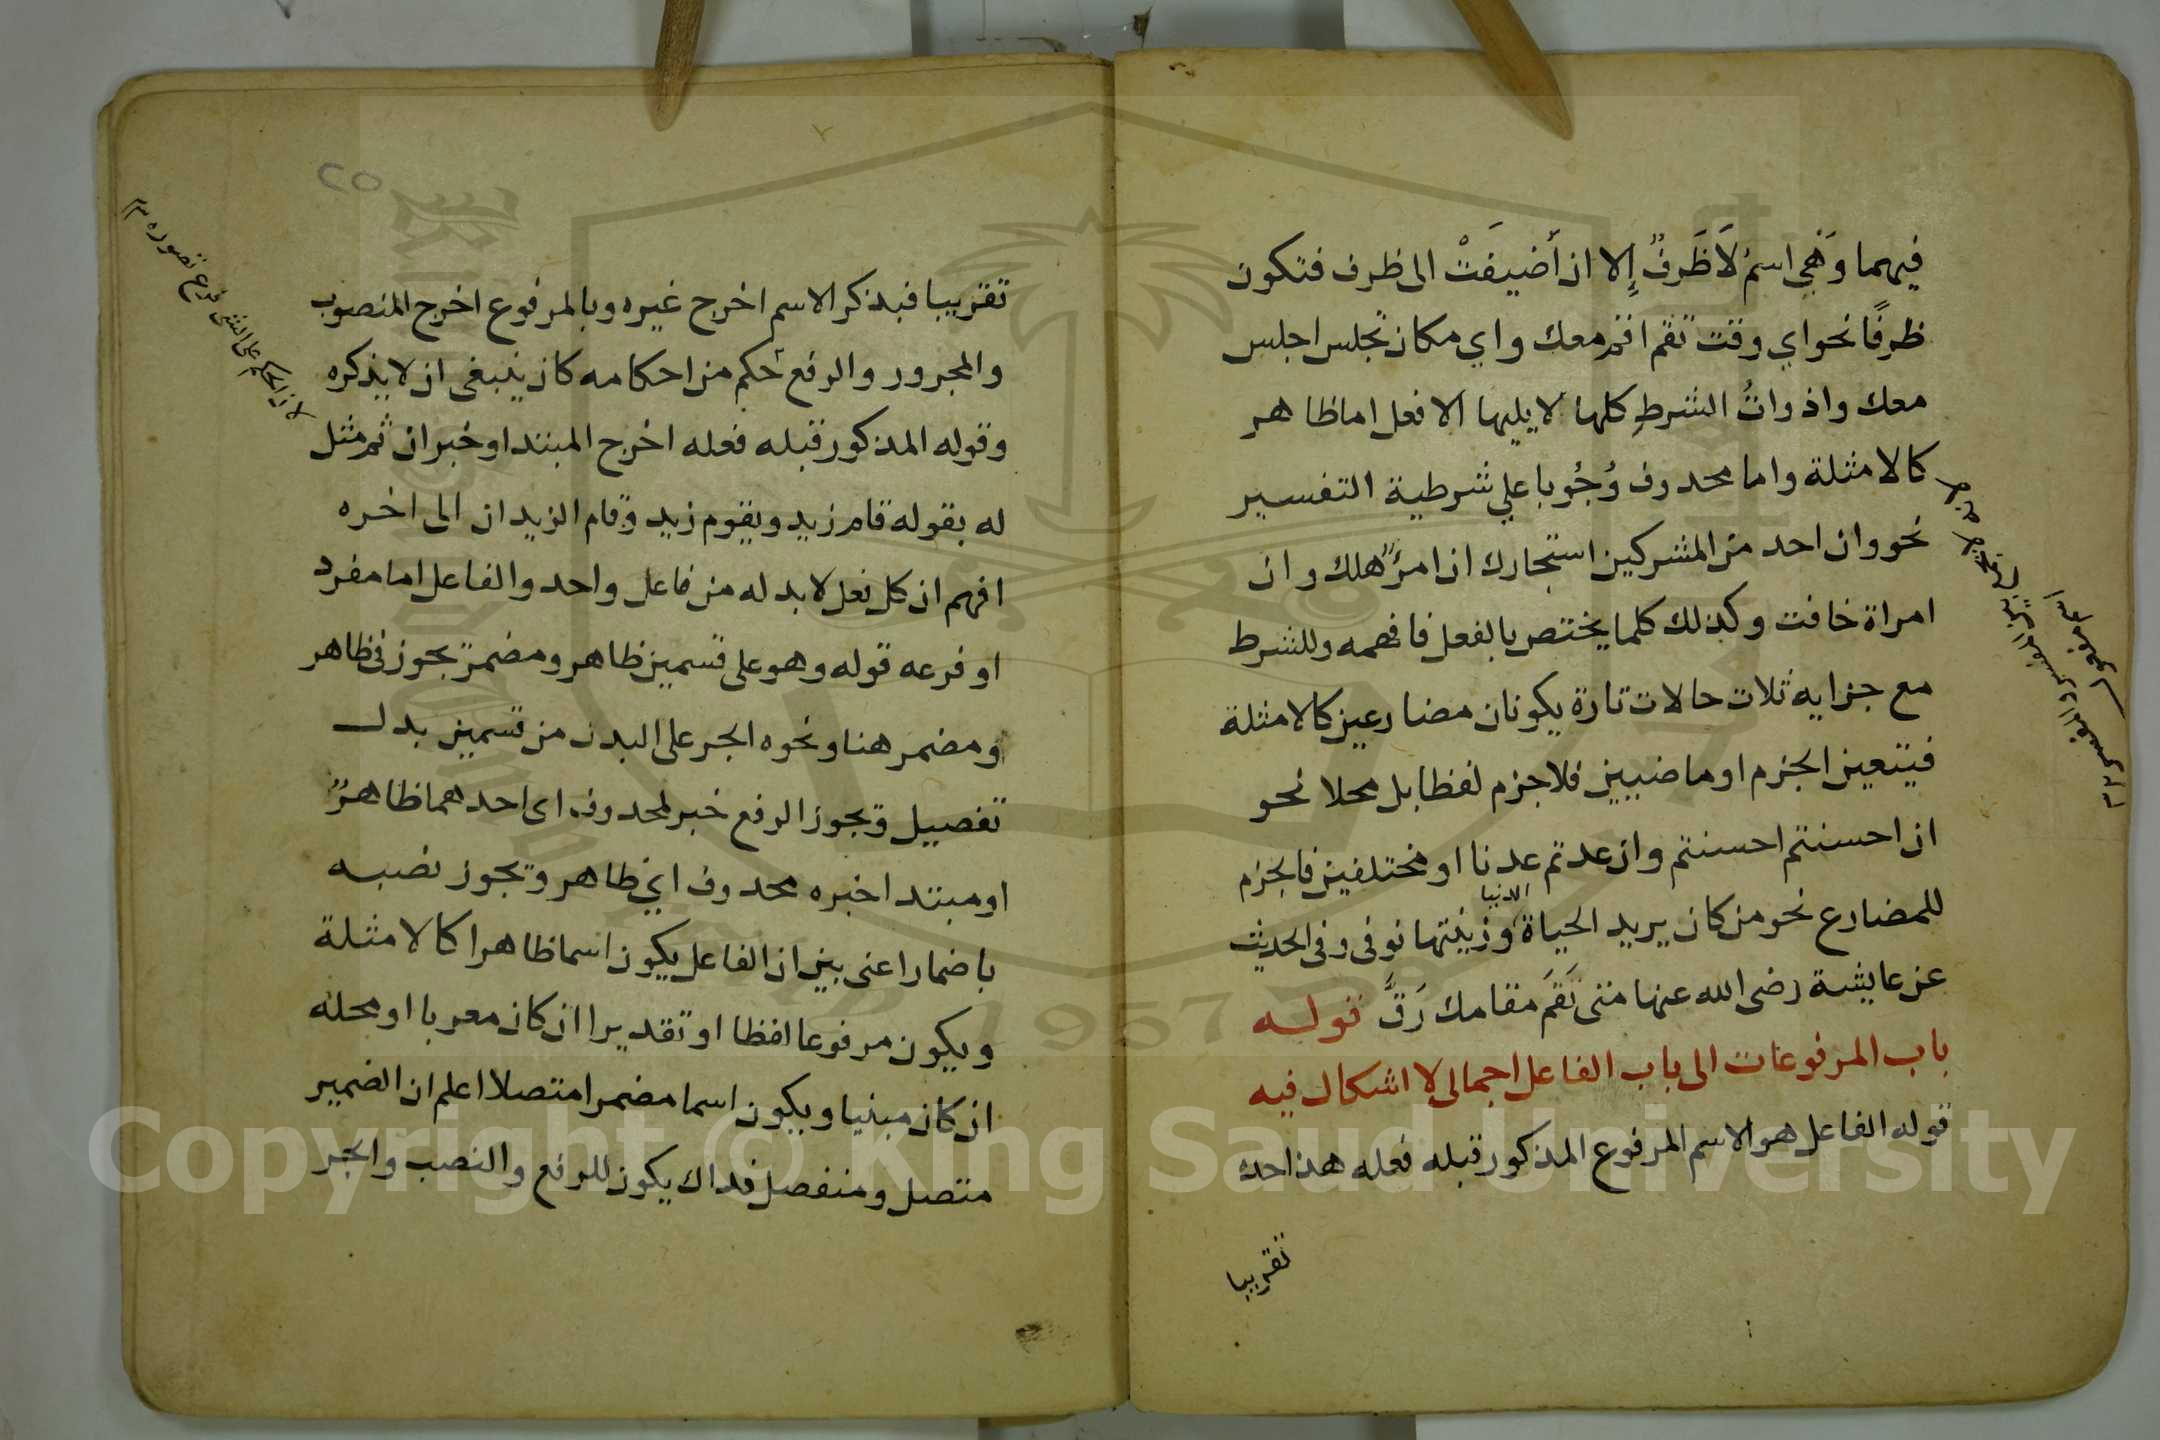 فيهما وَهِي اسمٌ لَا ظَرفٌ إِلا ان أضيفَتْ الى ظرف فتكون
ظرفًا نحو اي وقت تقم اقم معك واي مكان تجلس اجلس
معك واذ واتُ الشرطِ كلها لا يليها الا فعل اما ظا هر
كالامثلة واما محدوف وُجُوبا علي شرطية التفسير
نحو وان احد من المشركين استجارك ان امرٌ هلك وان
امراة خافت وكذلك كلما يختص بالفعل فافهمه وللشرط
مع جزايه ثلاث حالات تارة يكونان مضارعين كالامثلة
فيتعين الجزم او ماضيين فلا جزم لفظا بل محلا نحو
ان احسنتم احسنتم وان عدتم عدنا او مختلفين فالجزم
للمضارع نحو من كان يريد الحياة الدنيا وزينتها نوفى وفى الحديث
عن عايشة رضى الله عنها متى تَقمَ مقامك رَقَّ قولـه
باب المرفوعات الى باب الفاعل اجمالى لا اشكال فيه
قوله الفاعل هو الاسم المرفوع المذكور قبله فعله هذا حدٌ
تقريبا
٢٥
تقريبا فبذكر الاسم اخرج غيره وبالمرفوع اخرج المنصوب
والمجرور والرفع حكم من احكامه كان ينبغى ان لا يذكره
وقوله المذكور قبله فعله اخرج المبتدا وخبران ثم مثل
له بقوله قام زيد ويقوم زيد وقام الزيدان الى اخره
افهم ان كل فعل لا بد له من فاعل واحد والفاعل اما مفرد
او فرعه قوله وهو على قسمين ظاهر ومضمر يجوز فى ظاهر
ومضمر هنا ونحوه الجر على البدل من قسمين بدل
تفصيل ويجوز الرفع خبر لمحدوف اى احدهما ظاهرٌ
او مبتدا خبره محدوف اي ظاهر ويجوز نصبه
باضمار اعنى بين ان الفاعل يكون اسما ظاهرا كالامثلة
ويكون مرفوعا لفظا او تقديرا ان كان معربا او محله
ان كان مبنيا ويكون اسما مضمرا متصلا اعلم ان الضمير
متصل ومنفصل فداك يكون للرفع والنصب والجر
لان الحكم على الشى فرع تصوره
Copyright © King Saud University
1957